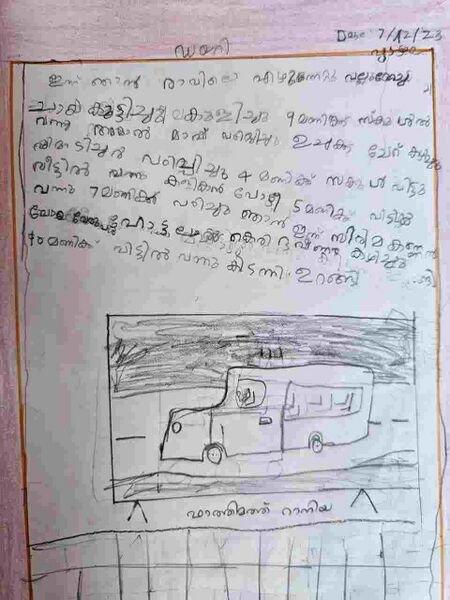 Date: 7/12/23
ഡയറി
വ്യാഴം
ഇന്ന് ഞാൻ രാവിലെ എഴുന്നേറ്റു പല്ലുതേച്ചു
ചായ കുടിച്ചു കുളിച്ചു 9 മണിക്ക് സ്കൂളിൽ
വന്നു മാഷ് പഠിപ്പിച്ചു ഉച്ചക്ക് ചോറ്
പഠിപ്പിച്ചു 4 മണിക്ക് സ്കൂൾ വിട്ടു
വീട്ടിൽ വന്നു കളിക്കാൻ പോയി 5 മണിക്ക് വീട്ടിൽ
വന്നു 7 മണിക്ക് പഠിച്ചു ഞാൻ ഇന്ന് സിനിമ കാണാൻ
കയറി ഭക്ഷണം കഴിച്ചു
10 മണിക്ക് വീട്ടിൽ വന്നു കിടന്നു ഉറങ്ങി
ഫാത്തിമത്ത് റാനിയ